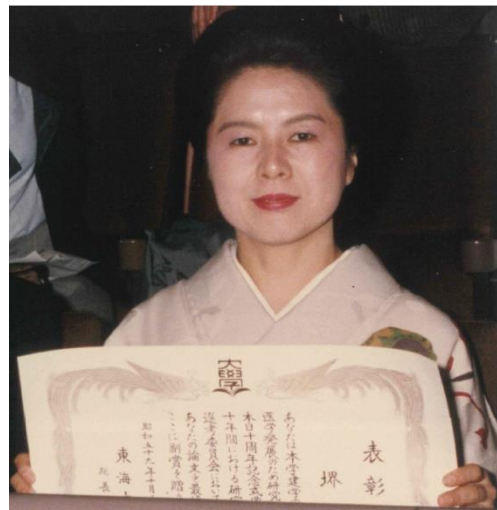 大學
表彰
堺
あなたは本学建学
医学発展のため研究
本日十周年記念式典
十年間における研究
選考委員会において
あなたの論文を最
ここに副賞を贈
昭和五十九年十月
東海